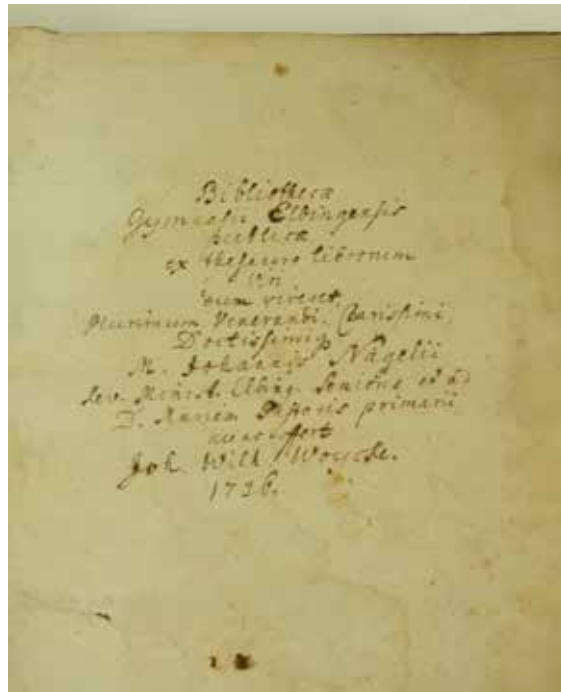 Bibliothecæ
Gymnasii Elbingensis
publicæ
ex thesauro librorum
Viri
dum viveret,
Plurimum Venerandi, Clarissimi,
Doctissimiq
M. Johannis Nägelii
Rev. Minist. Elbing. Senioris et ad
D. Mariam Pastoris primarii
offert
Joh. Wilh.
1736.